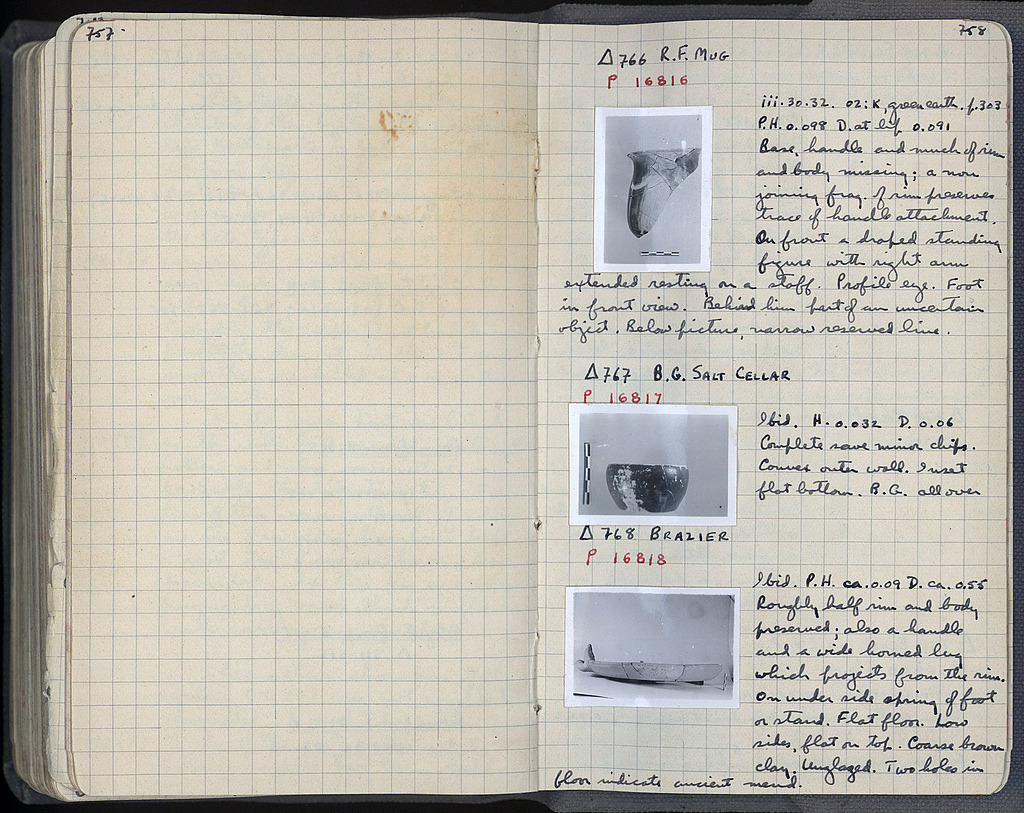 757.
758
Δ766 R.F. MUG
P 16816
iii.30.32. 02:K, green earth. p.303
P.H. 0.098 D. at lip 0.091
Base, handle and much of rim
and body missing; a non
joining frag. of rim preserves
trace of handle attachment.
On front a draped standing
figure with right arm
extended resting on a staff. Profile eye. Foot
in front view. Behind him part of an uncertain
object. Below picture, narrow reserved line.
Δ767 B.G. SALT CELLAR
P 16817
Ibid. H. 0.032 D. 0.06
Complete save minor chips.
Convex outer wall. Inset
flat bottom. B.G. all over
Δ768 BRAZIER
P 16818
Ibid. P.H. ca. 0.09 D. ca. 0.55
Roughly half rim and body
preserved; also a handle
and a wide horned lug
which projects from the rim.
On under side spring of foot
or stand. Flat floor. Low
sides, flat on top. Coarse brown
clay. Unglazed. Two holes in
floor indicate ancient mend.